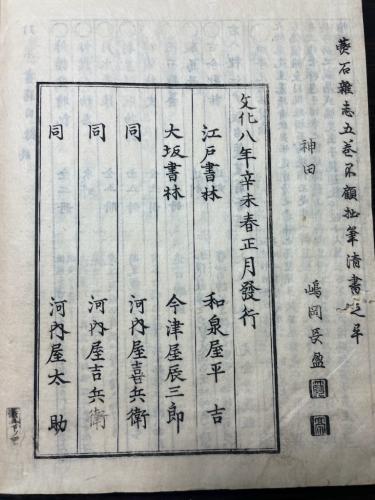 燕石雜志五巻不顧拙筆清書之畢
神田 嶋岡長盈
文化八年辛未春正月發行
江戸書林 和泉屋平吉
大坂書林 今津屋辰三郎
同 河内屋喜兵衛
同 河内屋吉兵衛
同 河内屋太助